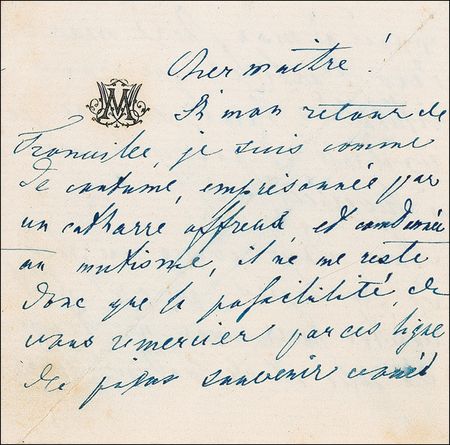 Cher maitre!
A mon retour de
Franville, je suis comme
de coutume, emprisonnée par
un catharre affreux, et condamnée
au mutisme, il ne me reste
donc que la possibilité, de
vous remercier par ces ligne
de souvenir